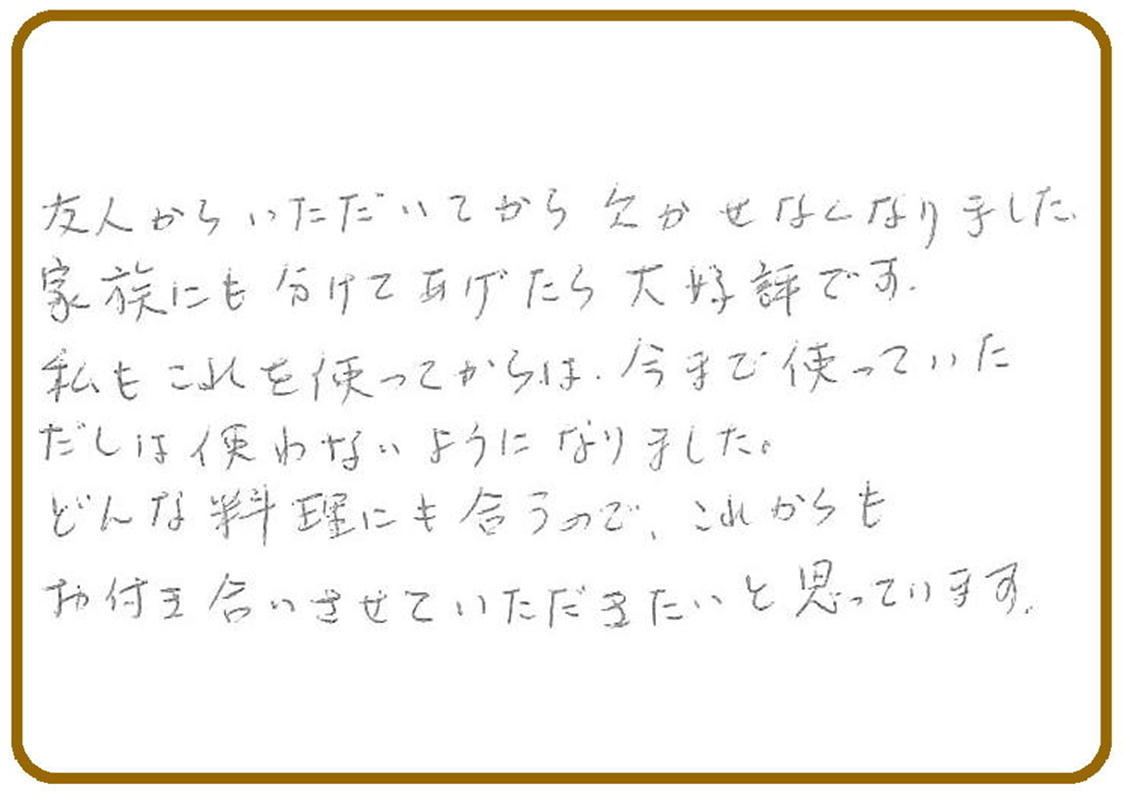 友人からいただいてから欠かせなくなりました.
家族にも分けてあげたら大好評です.
私もこれを使ってからは.今まで使っていた
だしは使わないようになりました。
どんな料理にも合うので、これからも
お付き合いさせていただきたいと思っています.